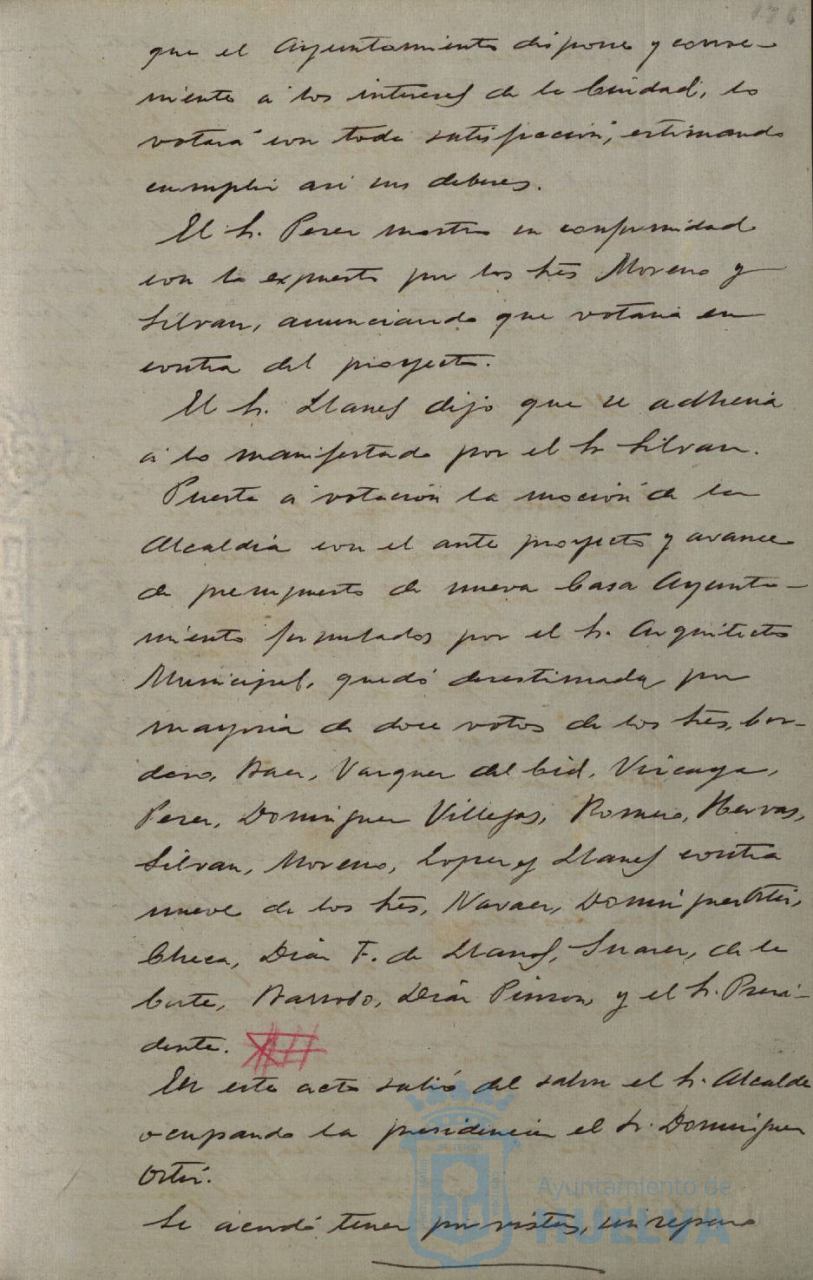 que el Ayuntamiento dispone y conve-
niente á los intereses de la Ciudad, lo
votará con toda satisfacción, estimando
cumplir asi sus deberes.
El Sr. Perez mostró su conformidad
con lo expuesto por los Sres Moreno y
Silvan, anunciando que votaria en
contra del proyecto.
El Sr. Llanes dijo que se adheria
á lo manifestado por el Sr Silvan.
Puesta á votación la moción de la
Alcaldia con el ante proyecto y avance
de presupuesto de nueva Casa Ayunta-
miento formulados por el Sr. Arquitecto
Municipal, quedó desestimada por
mayoria de doce votos de los Sres, Cor-
dero, Baer, Vazquez del Cid, Vizcaya,
Perez, Dominguez Villegas, Romero, Hervas,
Silvan, Moreno, Lopez y Llanes contra
nueve de los Sres, Dominguez Ortiz,
Checa, Diaz F. de Llanos, Suarez, de la
Corte, Barroso, Diaz Pinzon, y el Sr. Presi-
dente.
En este acto salió del salon el Sr. Alcalde
ocupando la presidencia el Sr. Dominguez
Ortiz.
Se acordó tener por vistas, un reparo
Ayuntamiento de
HUELVA